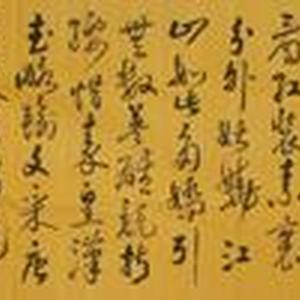 看红装素裹
分外妖娆江
山如此多娇引
無数英雄竞折
腰惜秦皇漢
武略输文采唐